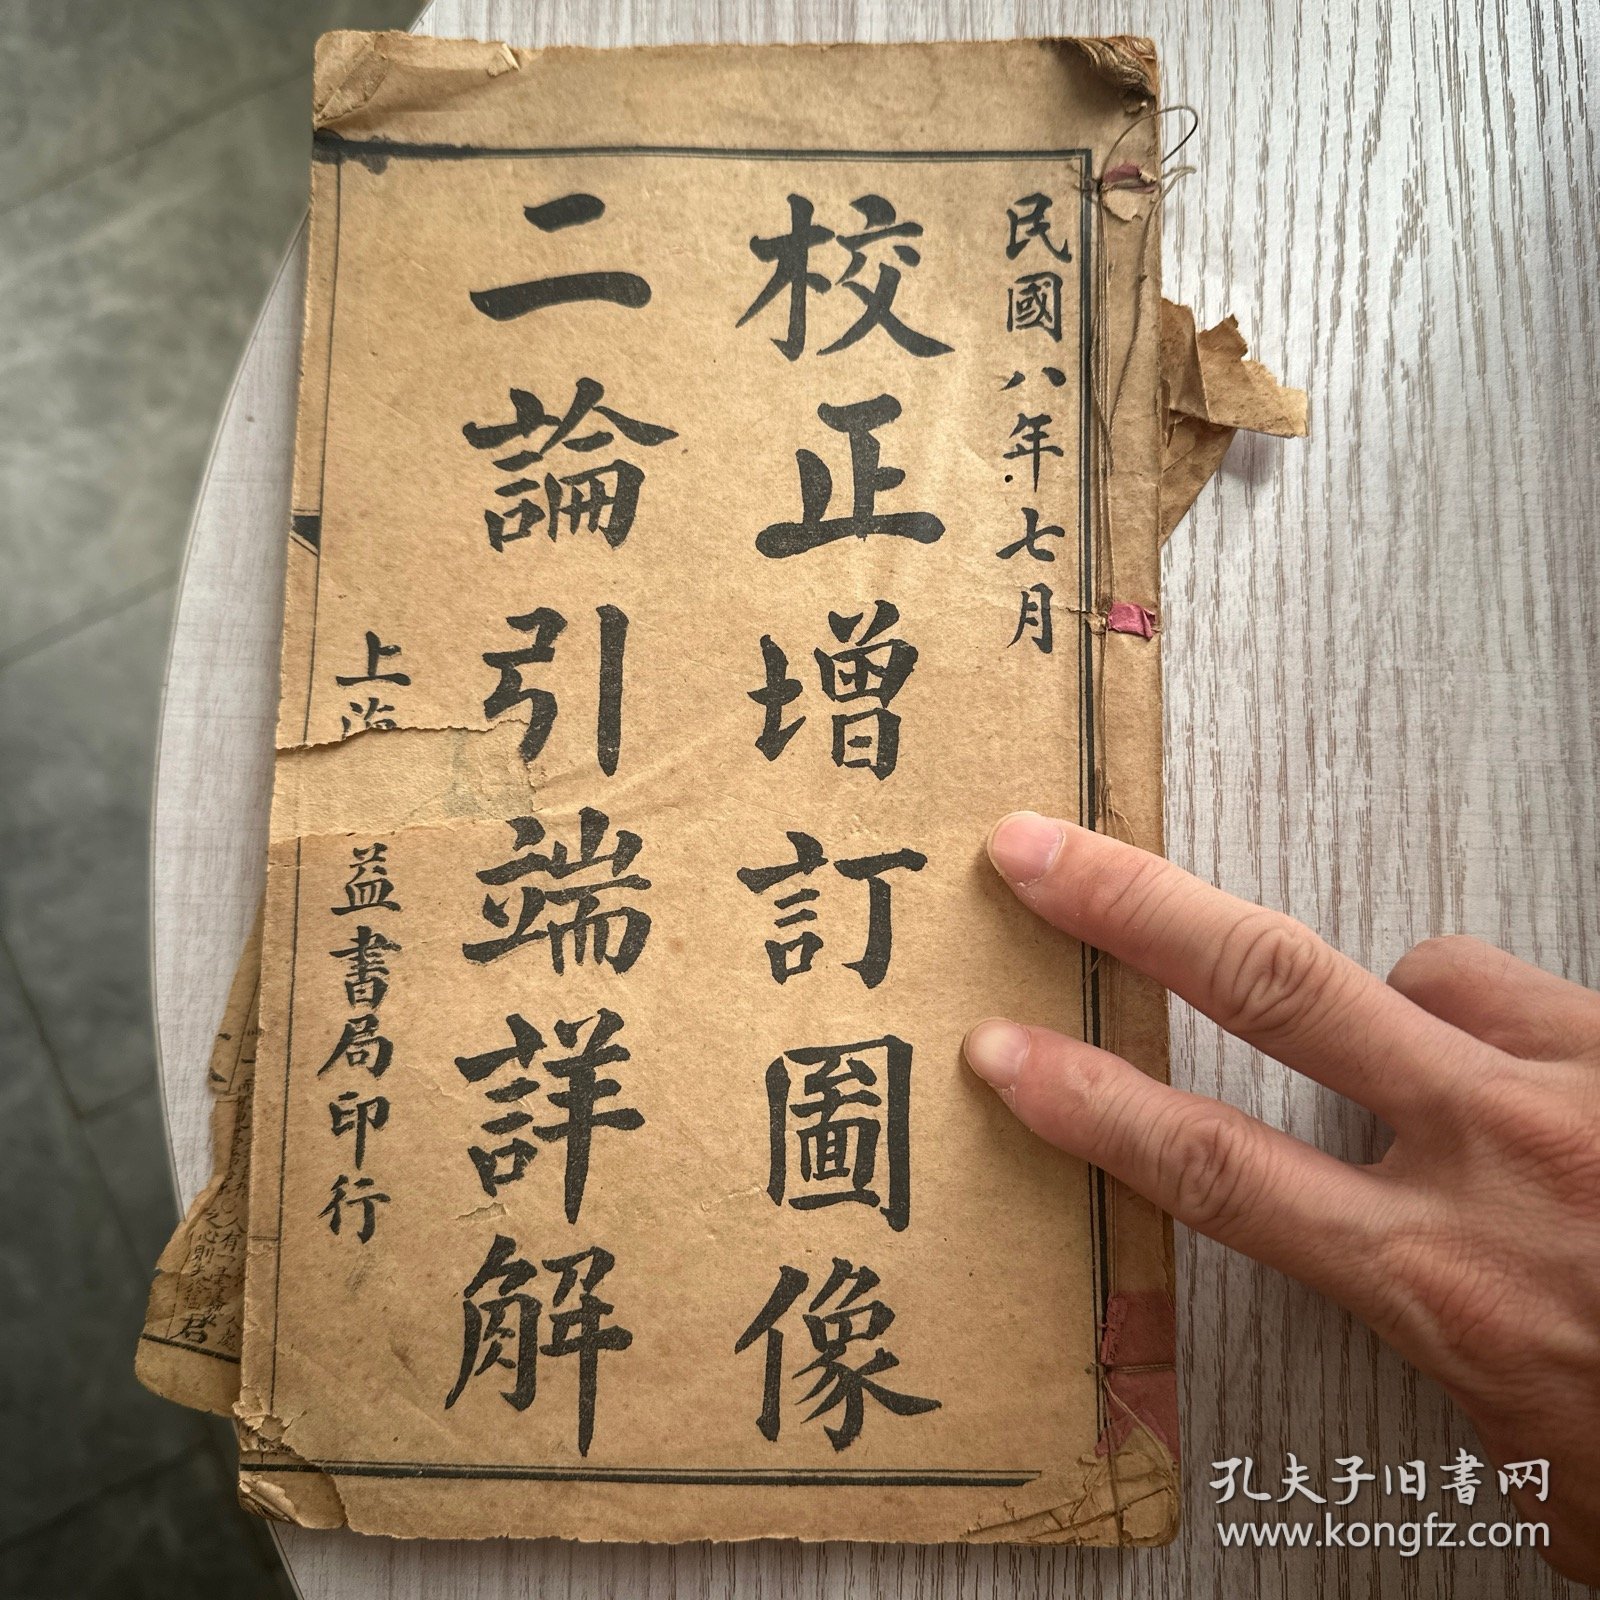 民國八年七月
校正增訂圖像
二論引端詳解
上海
益書局印行
孔夫子旧書网
www.kongfz.com